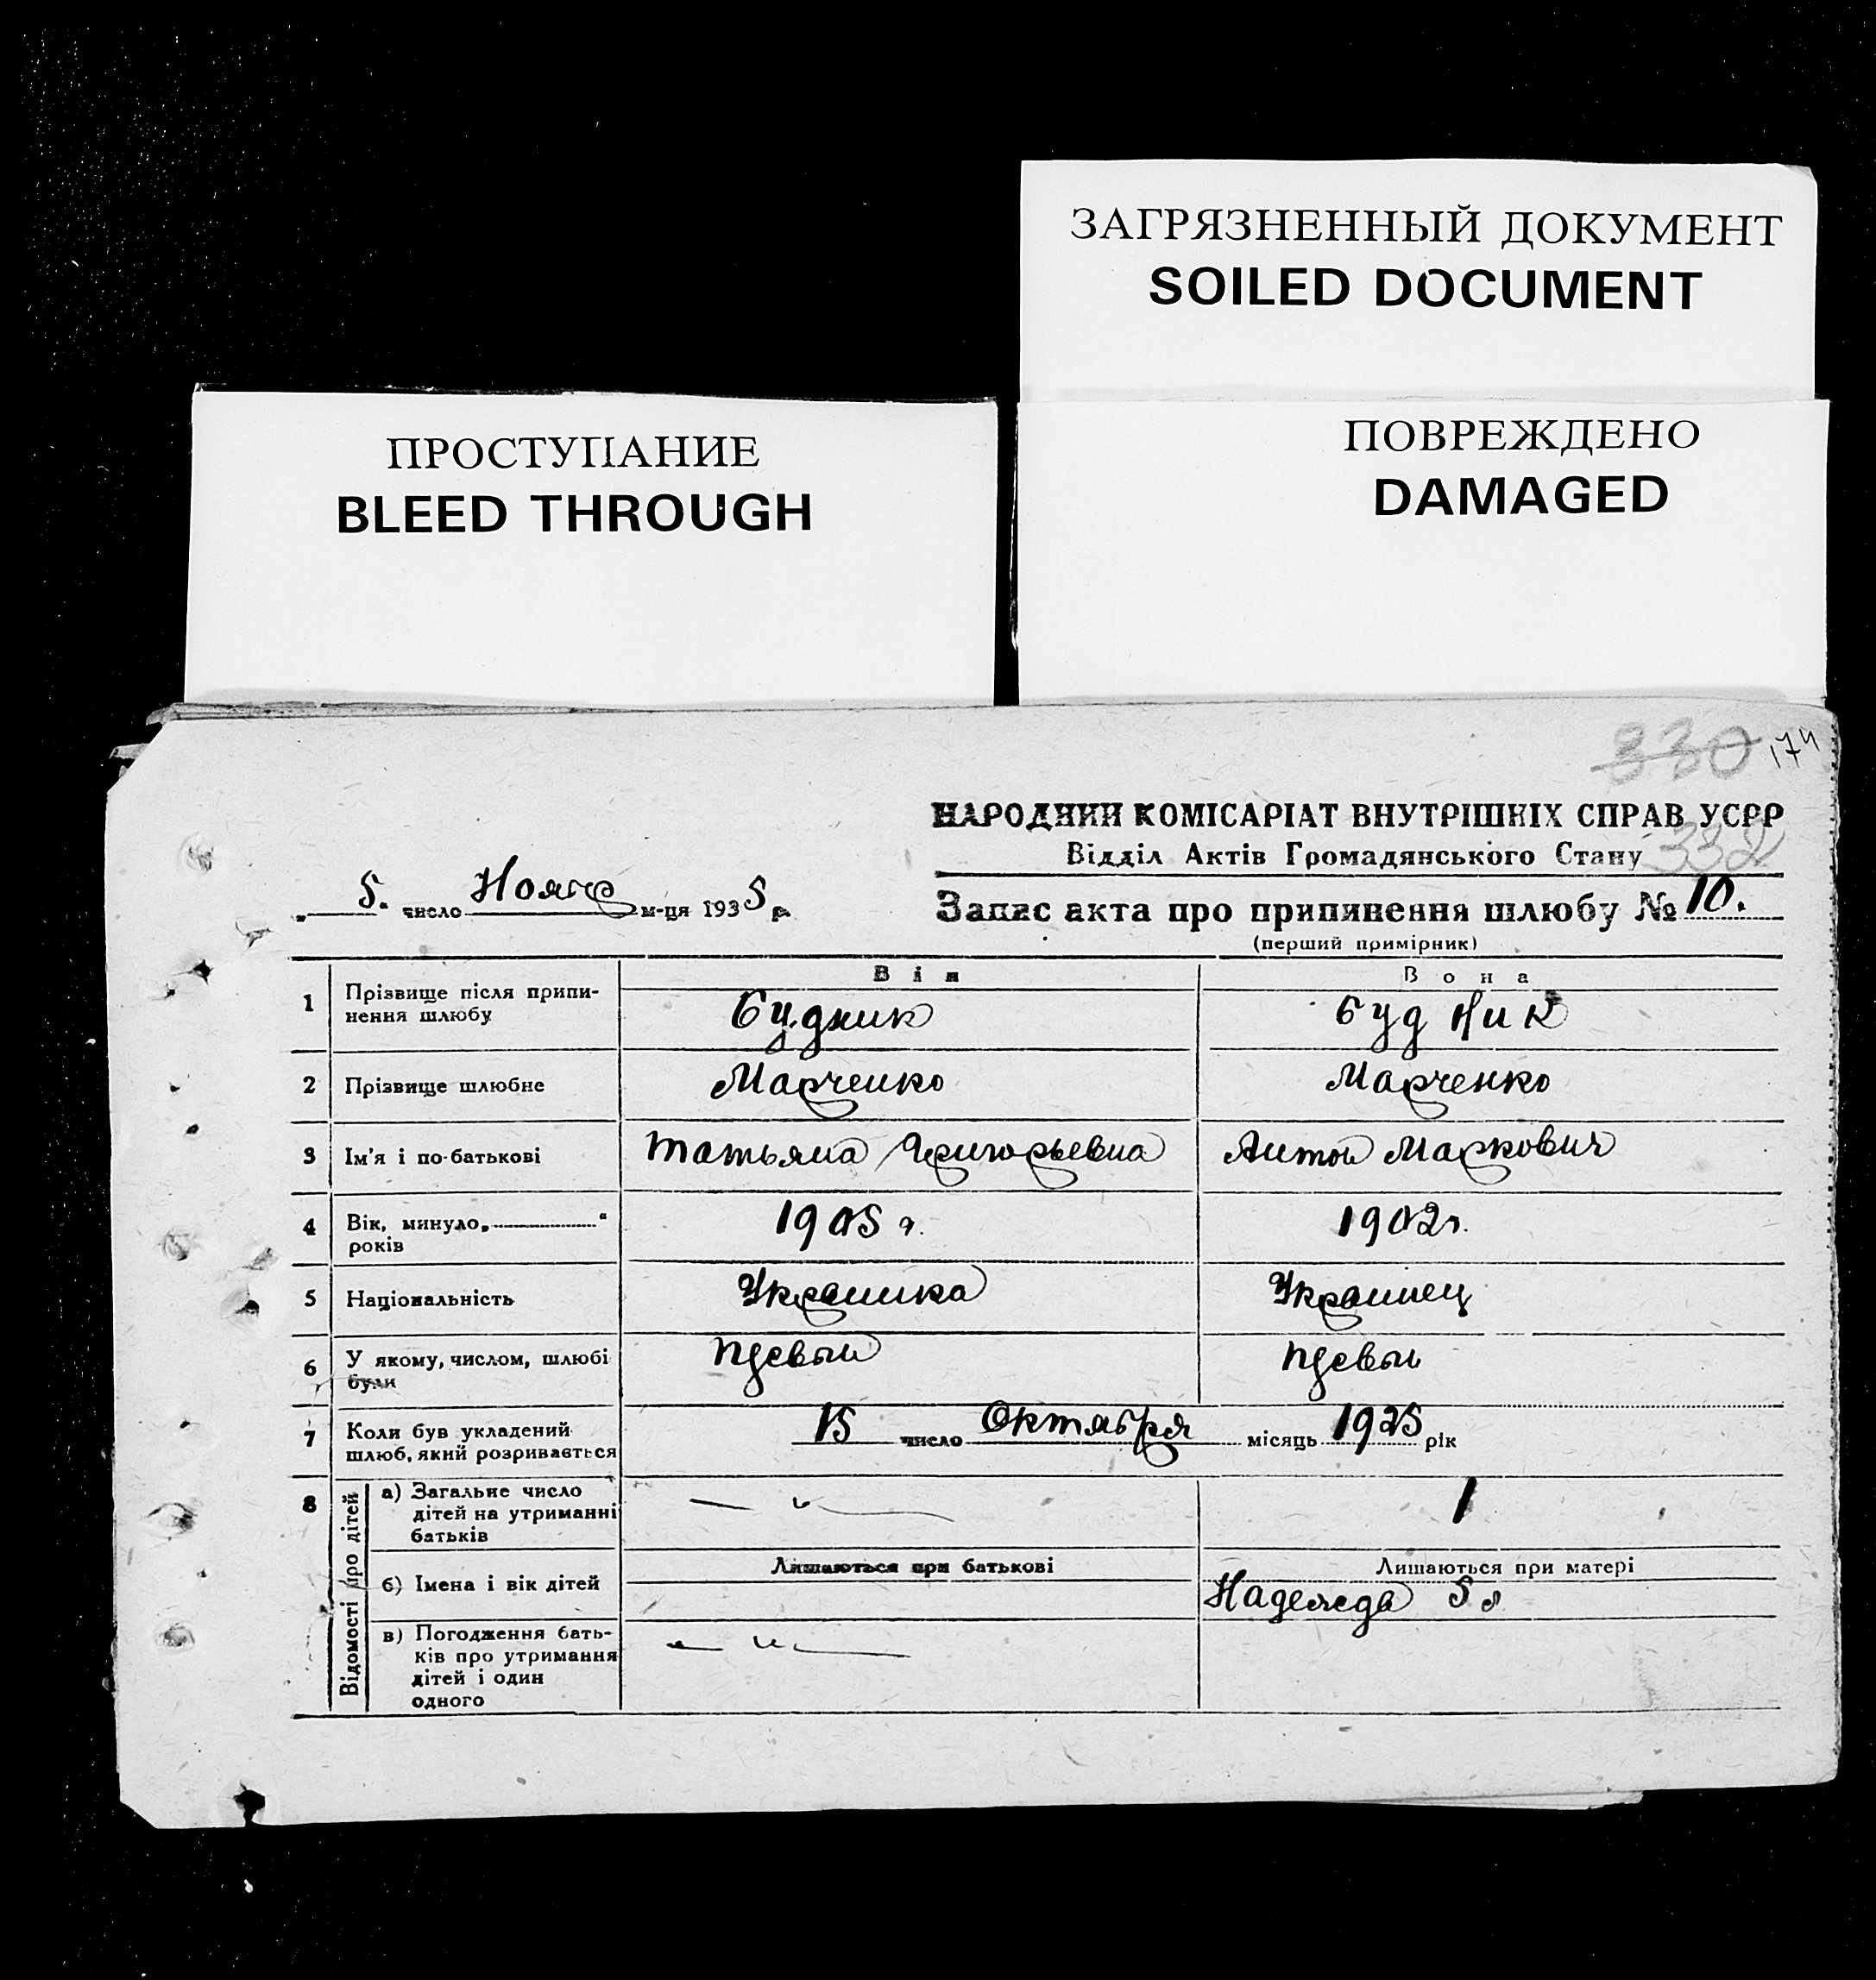 ЗАГРЯЗНЕННЫЙ ДОКУМЕНТ
SOILED DOCUMENT
ПРОСТУПАНИЕ
BLEED THROUGH
ПОВРЕЖДЕНО
DAMAGED
330 174
НАРОДНИЙ КОМІСАРІАТ ВНУТРІШНІХ СПРАВ УСРР
Відділ Актів Громадянського Стану 332
„ 5. число м-ця 1935 р.
Запис акта про припинення шлюбу № 10.
(перший примірник)
Він Вона
1 Прізвище після припи-
нення шлюбу
Будник Будник
2 Прізвище шлюбне Марченко Марченко
3 Ім'я і по-батькові Татьяна Григорьевна Антон Маркович
4 Вік, минуло „ “
років
1905 г. 1902 г.
5 Національність Украинка Украинец
6 У якому, числом, шлюбі
були
первый первый
7 Коли був укладений
шлюб, який розривається
15 число Октября місяць 1925 рік
8 Відомості про дітей
а) Загальне число
дітей на утриманні
батьків
1
Лишаються при батькові Лишаються при матері
б) Імена і вік дітей Надежда 5 л
в) Погодження бать-
ків про утримання
дітей і один
одного